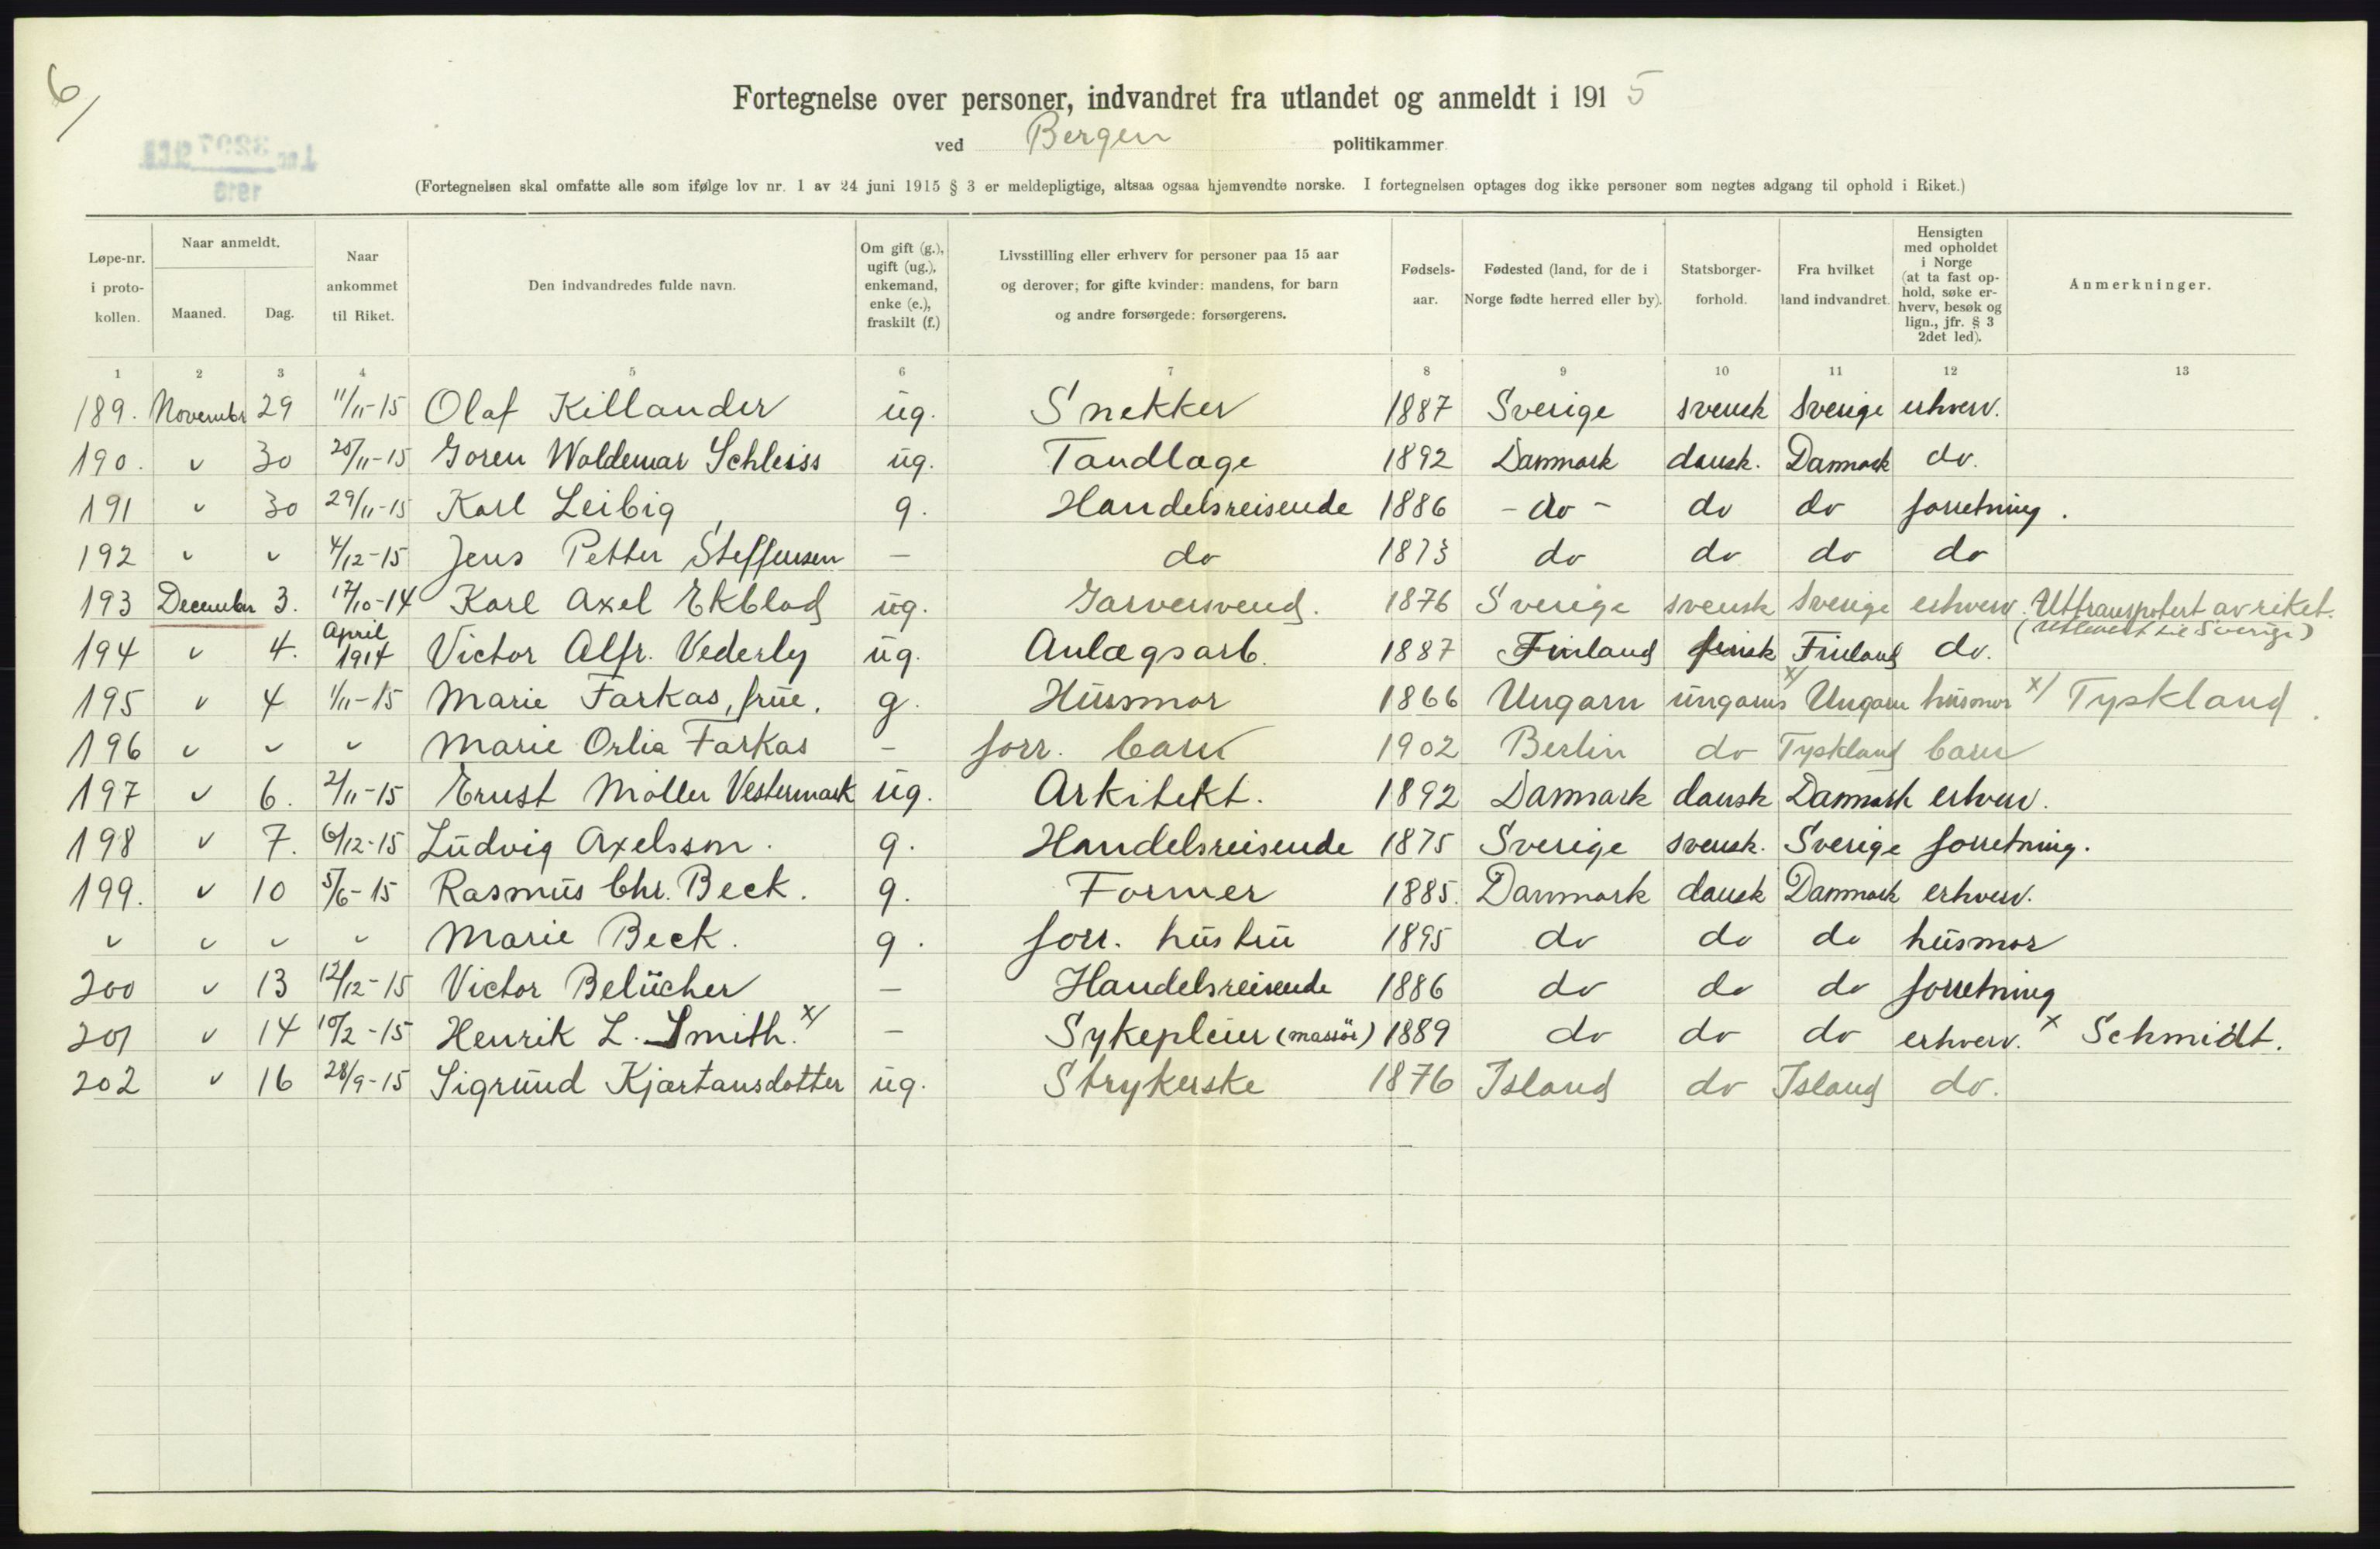 6/
Fortegnelse over personer, indvandret fra utlandet og anmeldt i 1915
ved Bergen politikammer
(Fortegnelsen skal omfatte alle som ifølge lov nr. 1 av 24 juni 1915 § 3 er meldepligtige, altsaa ogsaa hjemvendte norske. I fortegnelsen optages dog ikke personer som negtes adgang til ophold i Riket.)
Løpe-nr. i proto-kollen. Naar anmeldt. Maaned. Dag. Naar ankommet til Riket. Den indvandredes fulde navn. Om gift (g.), ugift (ug.), enkemand, enke (e.), fraskilt (f.) Livsstilling eller erhverv for personer paa 15 aar og derover; for gifte kvinder: mandens, for barn og andre forsørgede: forsørgerens. Fødsels-aar. Fødested (land, for de i Norge fødte herred eller by). Statsborger-forhold. Fra hvilket land indvandret. Hensigten med opholdet i Norge (at ta fast op-hold, søke er-hverv, besøk og lign., jfr. § 3 2det led). Anmerkninger.
1 2 3 4 5 6 7 8 9 10 11 12 13
189. Novembr 29 11/11-15 Olaf Killander ug. Snekker 1887 Sverige svensk Sverige erhverv.
190. " 30 25/11-15 Goren Woldemar Schleiss ug. Tandlæge 1892 Danmark dansk. Danmark do.
191 " 30 29/11-15 Karl Leibig g. Handelsreisende 1886 - do - do do forretning.
192 " " 4/12-15 Jens Petter Steffensen — do 1873 do do do do
193 December 3. 17/10-14 Karl Axel Ekblad ug. Garversvend. 1876 Sverige svensk Sverige erhverv. Uttransportert av riket. (utlevert til Sverige)
194 " 4. April 1914 Victor Alfr. Vederley ug. Anlægsarb. 1887 Finland finsk Finland do.
195 " 4 1/11-15 Marie Farkas, frue. g. Husmor 1866 Ungarn ungarns x/ Ungarn husmor x/ Tyskland.
196 " " " Marie Orlia Farkas — forr. barn 1902 Berlin do Tyskland barn
197 " 6. 2/11-15 Ernst Møller Vestermark ug. Arkitekt. 1892 Danmark dansk Danmark erhverv.
198 " 7. 6/12-15 Ludvig Axelsson. g. Handelsreisende 1875 Sverige svensk. Sverige forretning.
199. " 10 5/6-15 Rasmus Chr. Beck. g. Former 1885. Danmark dansk Danmark erhverv.
" " " " Marie Beck. g. forr. hustru 1895 do do do husmor
200 " 13 12/12-15 Victor Belücher — Handelsreisende 1886 do do do forretning
201 " 14 10/2-15 Henrik L. Smith. x/ — Sykepleier (massør) 1889 do do do erhverv. x Schmidt.
202 " 16 28/9-15 Sigrund Kjartansdotter ug. Strykerske 1876 Island do Island do.